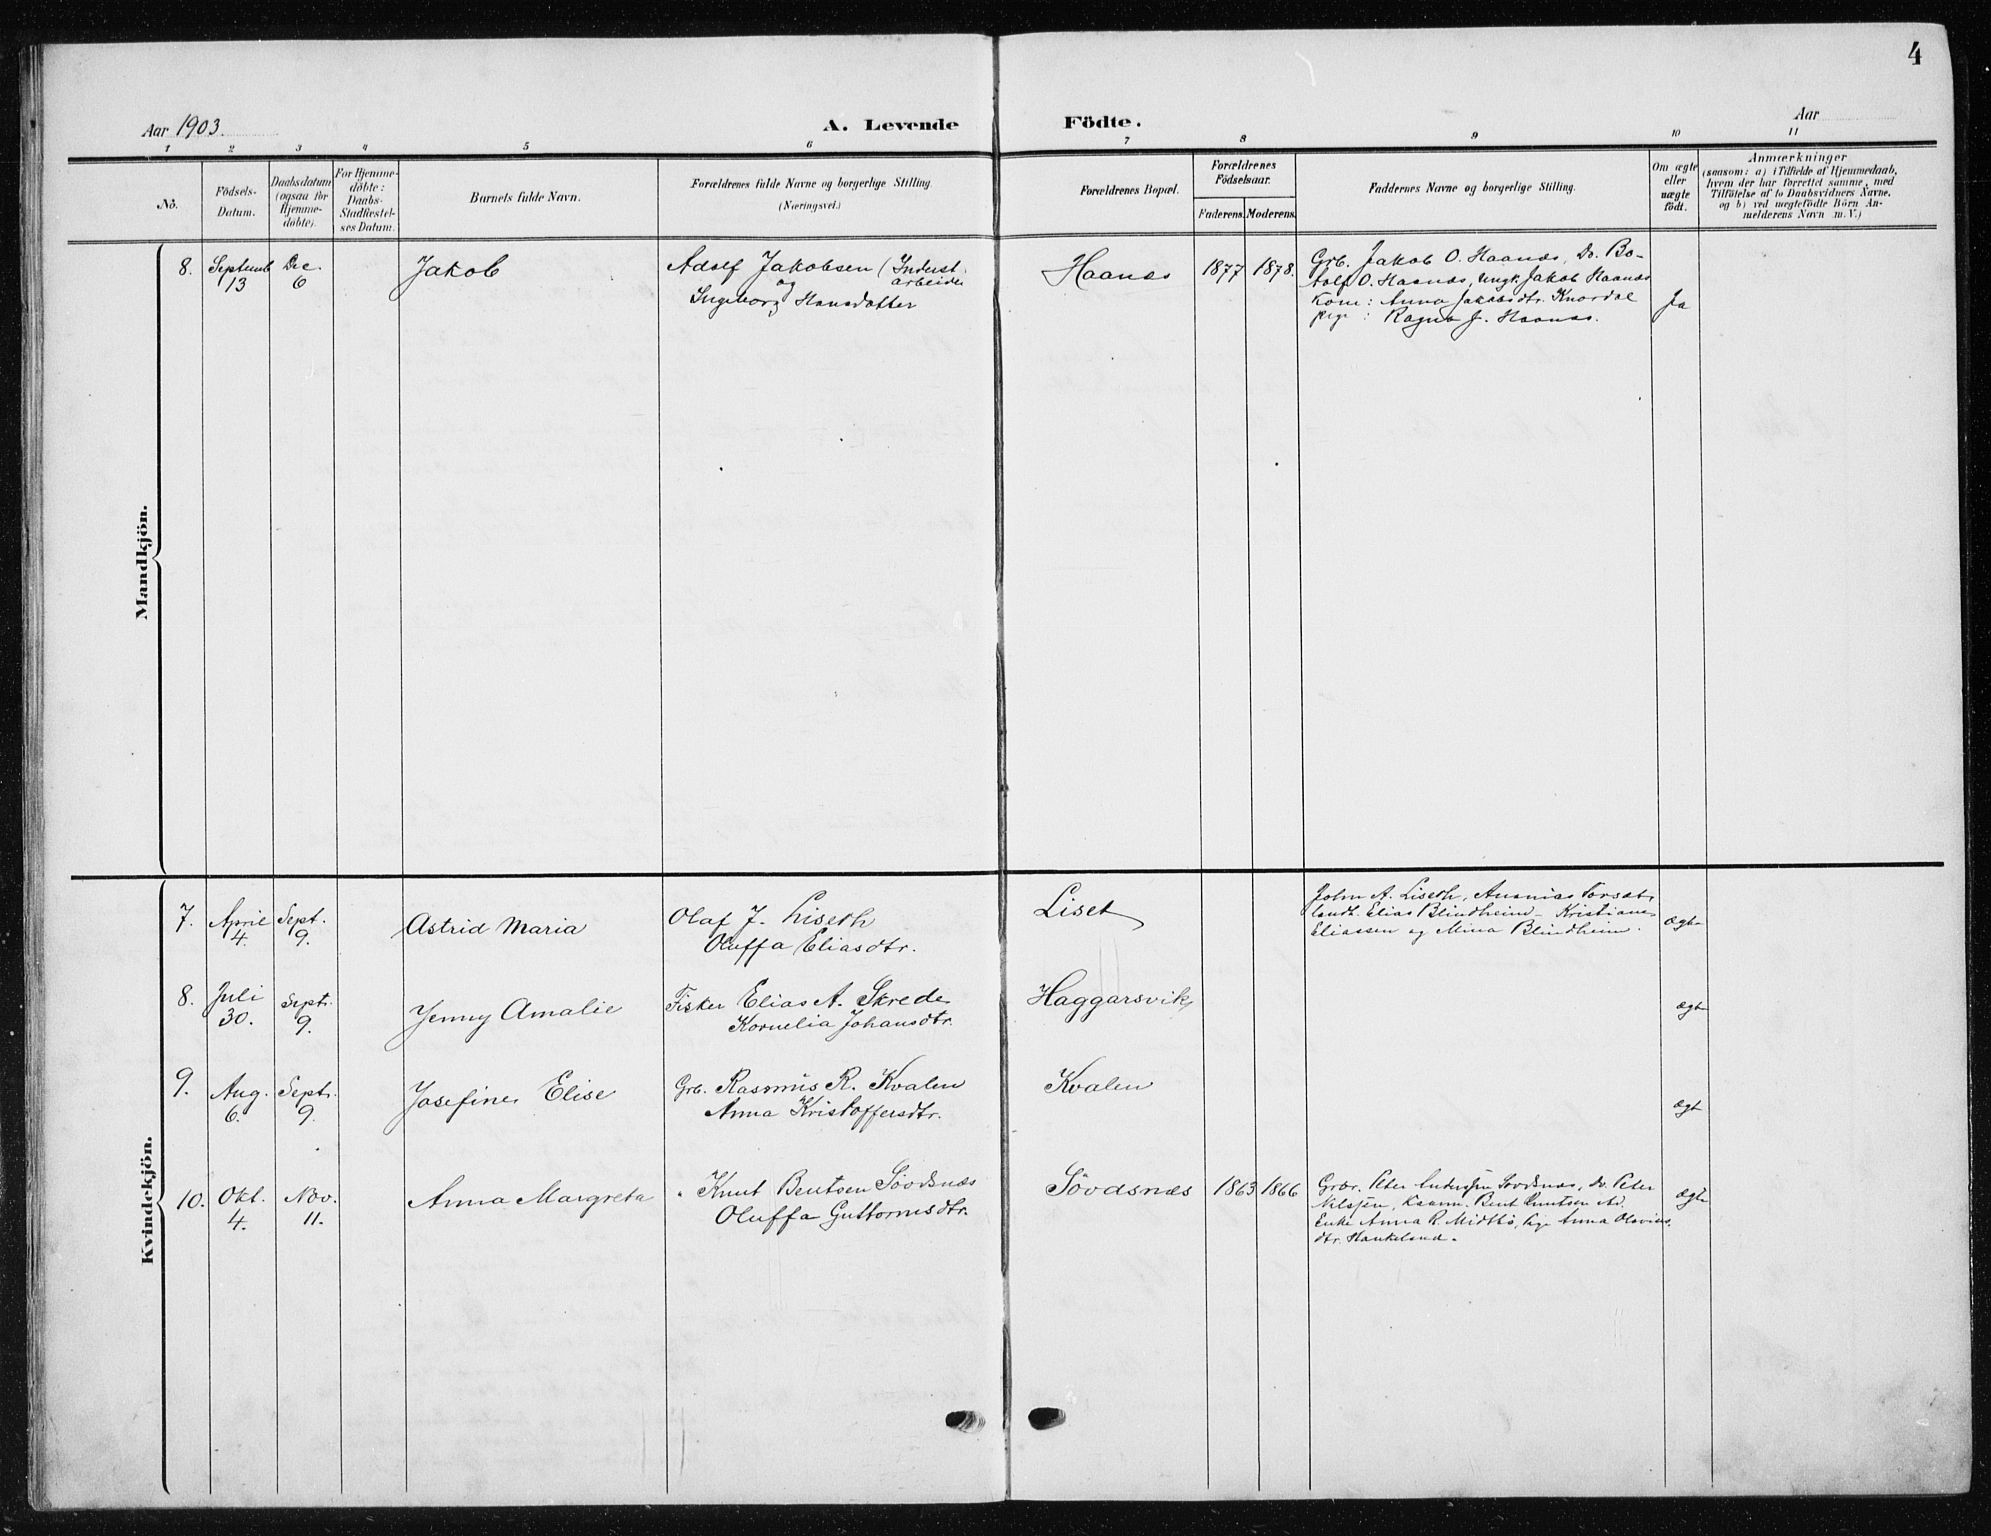 4
Aar 1903.
A. Levende Födte.
Aar
1 2 3 4 5 6 7 8 9 10 11
No.
Födsels-Datum.
Daabsdatum (ogsaa for Hjemme-döbte).
For Hjemme-döbte: Daabs-Stadfæstel-ses Datum.
Barnets fulde Navn.
Forældrenes fulde Navne og borgerlige Stilling.
(Næringsvei.)
Forældrenes Bopæl.
Forældrenes Födselsaar.
Faderens. Moderens.
Faddernes Navne og borgerlige Stilling.
Om ægte eller uægte födt.
Anmærkninger
(saasom: a) i Tilfælde af Hjemmedaab,
hvem der har forrettet samme, med
Tilföielse af to Daabsvidners Navne.
og b) ved uægtefödte Börn An-
melderens Navn m. V.)
Mandkjön.
8. Septemb 13 Dec. 6 Jakob
Adolf Jakobsen (Indust. arbeider
og
Ingeborg Hansdatter
Haanes 1877 1878.
Grb. Jakob O. Haanes, Do. Bo-
tolf O. Haanes, Ungk. Jakob Haanes
Kone: Anna Jakobsdtr. Knardal
pige: Ragna J. Haanes.
Ja
Kvindekjön.
7. April 4. Sept. 9. Astrid Maria
Olaf J. Liseth
Oluffa Eliasdtr.
Liset
John A. Liseth, Ananias Torsæt-
landh. Elias Blindheim - Kristiane
Eliassen og Mina Blindheim.
Ægte
8. Juli 30. Sept. 9. Jenny Amalie
Fisker Elias A. Skrede
Kornelia Johansdtr.
Haggarsvik
ægt
9. Aug. 6. Sept. 9. Josefine Elise
Grb. Rasmus R. Kvalen
Anna Kristoffersdtr.
Kvalen
ægt
10. Okt. 4. Nov. 11. Anna Margreta
" Knut Bentsen Sövdsnæs
Oluffa Guttormsdtr.
Sövdsnæs 1863 1866
Grbr. Peter Andersen Sövdsnæs, do. Peter
Nilssen, Kaarm. Bent Knutsen
Enke Anna R. Midtbö, Pige Anna Olavius
dtr. Haukeland.
ægte